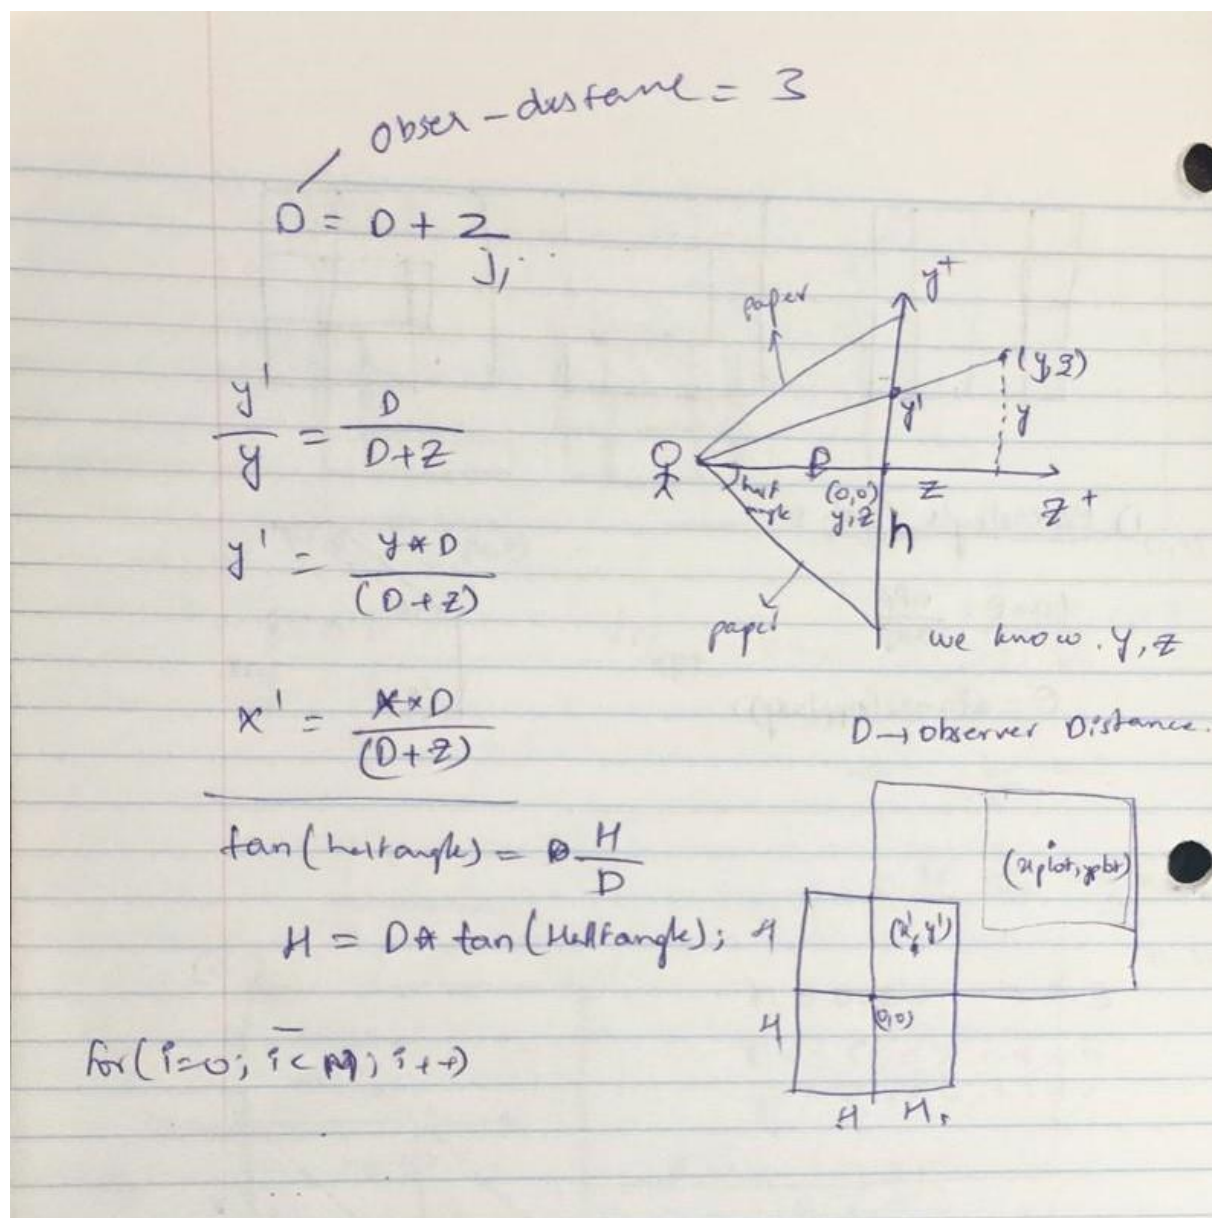 obser-distane = 3
D = D + Z
y'/y = D/(D+Z)
y' = y*D/(D+Z)
x' = x*D/(D+Z)
tan(halfangle) = H/D
H = D* tan(Halfangle);
for(i=0; i<M; i++)
y+
paper
(y,z)
y'
y
D
half
angle
(0,0)
y,z
z
z+
h
paper
we know. y, z
D→observer Distance.
(xplot,yplot)
H
(x', y')
H
(0,0)
H H